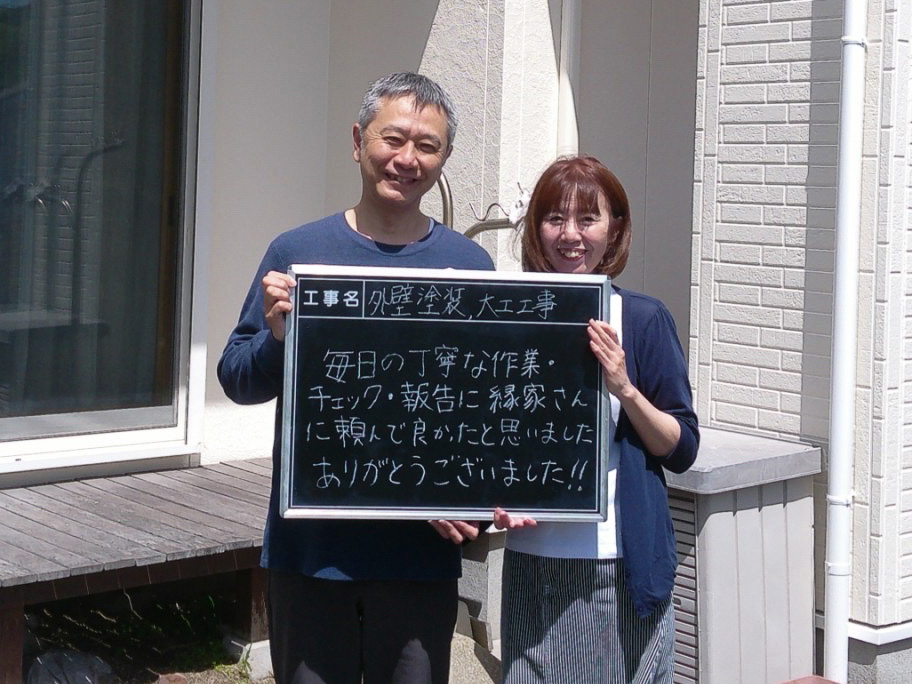 工事名 外壁塗装,大工工事
毎日の丁寧な作業・
チェック・報告に縁家さん
に頼んで良かったと思いました
ありがとうございました!!